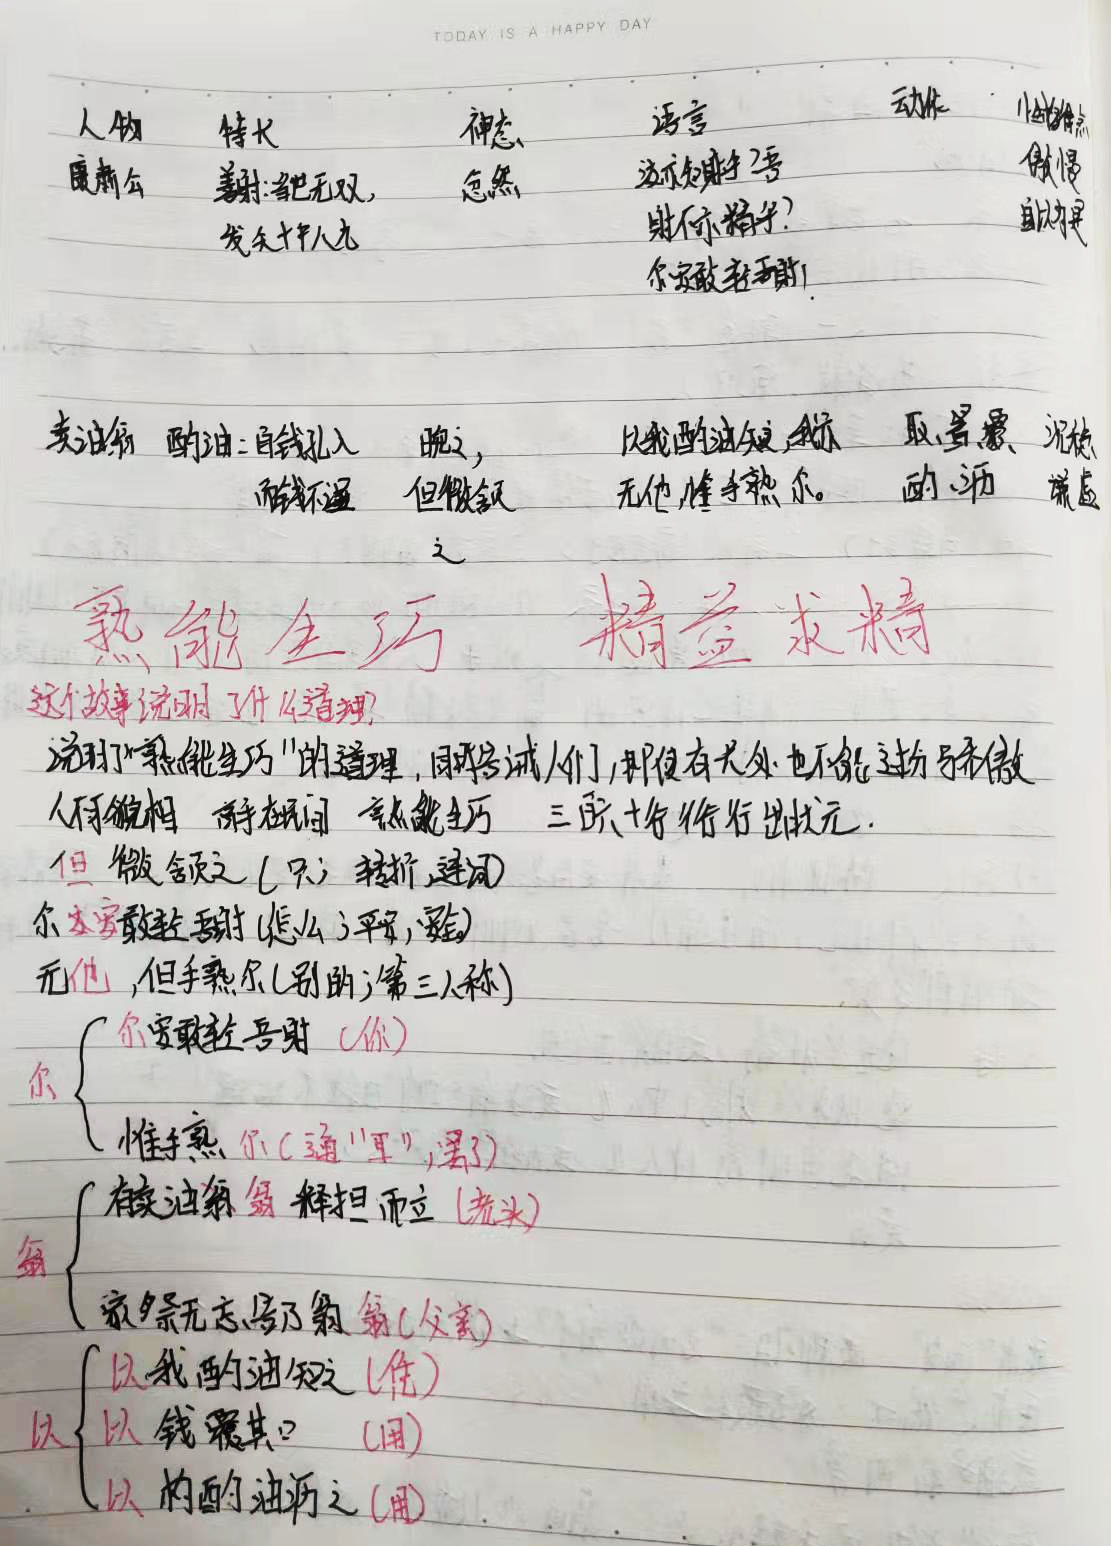 TODAY IS A HAPPY DAY
人物 特长 神态 语言 动作 性格特点
康肃公 善射:当世无双, 忿然 汝亦知射乎?吾 傲慢
发矢十中八九 射不亦精乎? 自以为是
尔安敢轻吾射!
卖油翁 酌油:自钱孔入 睨之, 以我酌油知之,我亦 取、置、覆、 沉稳
而钱不湿 但微颔 无他,惟手熟尔。 酌、沥 谦虚
之
熟能生巧 精益求精
这个故事说明了什么道理?
说明了"熟能生巧"的道理,同时告诫人们,即使有长处也不能过分骄傲
人不可貌相 高手在民间 熟能生巧 三百六十行行行出状元.
但微颔之(只;转折连词)
尔安敢轻吾射(怎么;平安,安全)
无他,但手熟尔(别的;第三人称)
尔安敢轻吾射(你)
尔
惟手熟尔(通"耳",罢了)
有卖油翁 翁 释担而立(老头)
翁
家祭无忘告乃翁 翁(父亲)
以我酌油知之(凭)
以 以钱覆其口 (用)
以杓酌油沥之(用)